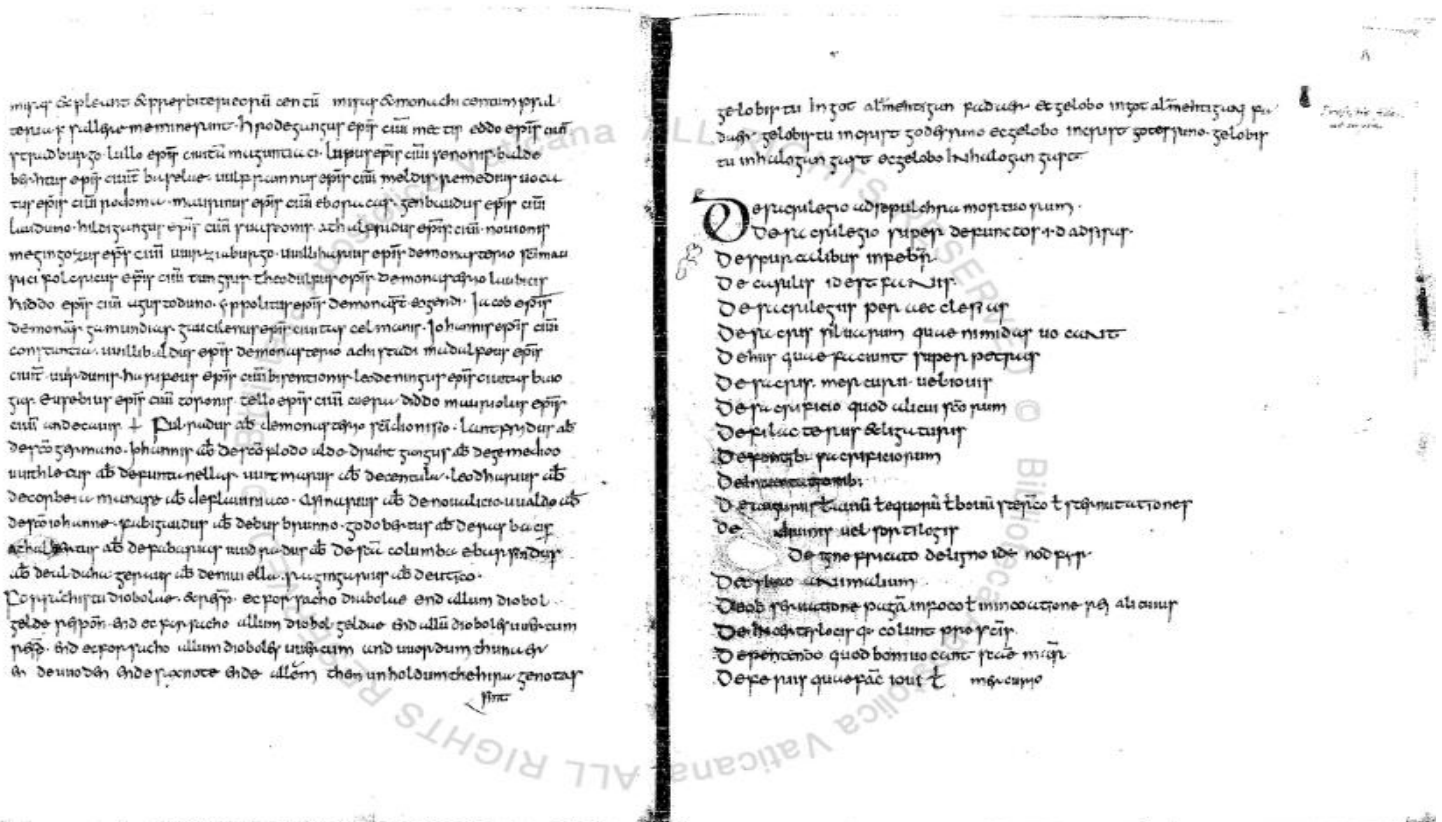 missas & pleant & presbiteri eorū centū missas & monachi centum psal
teria psallere meminerunt. hrodegangus epis̄ ciui mettis eddo epis̄ ciui
stradburgo. lullo epis̄ ciuitā maguntiaci. lupus epis̄ ciui senonis. balde
bertus epis̄ ciuit baselae. uulframnus epis̄ ciui meldis. remedius uoca
tus epis̄ ciui rodoma. maurinus epis̄ ciui eboracas. genbaudus epis̄ ciui
lauduno. hildigangus epis̄ ciui suaseonis. athalfridus epis̄ ciui. nouionis
megingozus epis̄ ciui uuirziaburgo. uuilliharius epis̄ de monasterio sc̄i mau
rici folcricus epis̄ ciui tungris theodulfus epis̄ de monasterio laubicis
hiddo epis̄ ciui agustoduno. yppolitus epis̄ de monast eogendi. Iacob epis̄
de monas gamundias. gauciolenus epis̄ ciuitas celmanis. Iohannis epis̄ ciui
constantia. uuillibaldus epis̄ de monasterio achistadi madalfeus epis̄
ciuit. uirdunis. harifeus epis̄ ciui bisentionis. leodeningus epis̄ ciuitas baio
gas. Eusebius epis̄ ciui toronis. tello epis̄ ciui coera. diddo mauriolus epis̄
ciui andecauis Fulradus ab̄ de monasterio sc̄i dionisio. lantfridus ab̄
de sc̄o germano. Iohannis ab̄ de sc̄o flodoaldo. druhtgangus ab̄ de gemedico
uuithlecus ab̄ de funtanellas. uuitmarus ab̄ de centula. leodharius ab̄
de corbeia manase ab̄ de flauiniaco. Asinarius ab̄ de noualicio. uualdo ab̄
de sc̄o iohanne. fabigaudus ab̄ de busbrunno. godobertus ab̄ de rasbacis
athalbertus ab̄ de fabarias uuidradus ab̄ de sc̄a columba ebarsindus
ab̄ de aldaha. geraus ab̄ de niuiella. ragingarius ab̄ de utico.
Forsachistu diobolae. & resp̄. ec forsacho diabolae end allum diobol
gelde resp̄on̄. end ec forsacho allum diobol geldae end allū dioboles uuercum
resp̄. end ec forsacho allum dioboles uuercum and uuordum thunaer
ende uuoden ende saxnote ende allēm them unholdum the hira genotas
sint
gelobistu in got alamehtigan fadaer ec gelobo in got alamehtigan fa
daer gelobistu in crist godes suno ec gelobo in crist gotes suno. gelobis
tu in halogan gast ec gelobo in halogan gast
De sacrilegio ad sepulchra mortuorum.
De sacrilegio super defunctos .i. dadsisas.
De spurcalibus in febr̄.
De casulis id est fanis.
De sacrilegiis per aecclesias
De sacris siluarum quae nimidas uocant
De his quae faciunt super petras
De sacris. mercurii. uel iouis
De sacrificio quod alicui sc̄orum
De filacteriis & ligaturis
De fontib; sacrificiorum
De incantationib;
De auguriis ł auiū ł equorū ł bouū sterco ł sternutationes
De diuinis uel sortilogis
De igne fricato de ligno id ē nodfyr.
De cerebro animalium
De obseruatione pagā in foco ł in incoatione rei alicuius
De incertis locis q̄ colunt pro sc̄is.
De petendo quod boni uocant sc̄ae mar̄.
De feriis quae fac̄ ioui ł mercurio